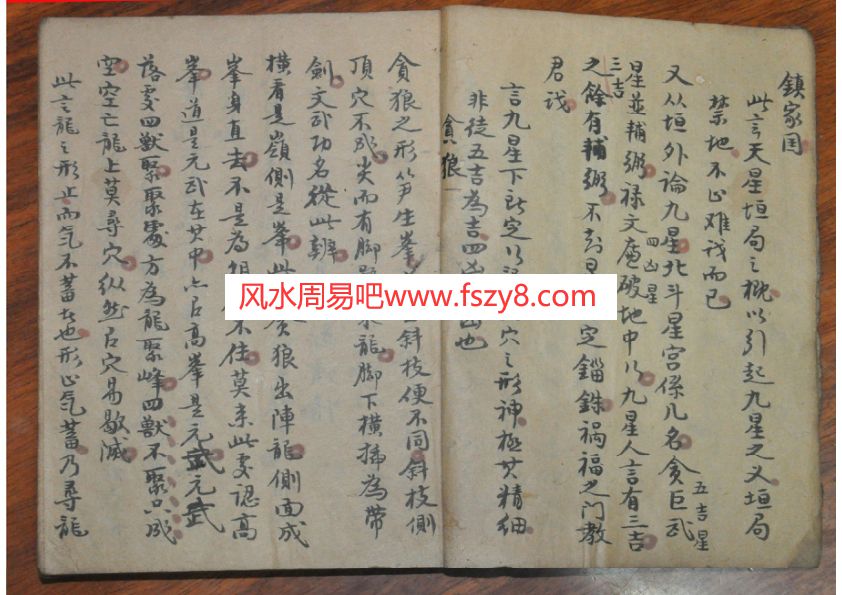 鎮家囯
此言天星垣局之概以引起九星之义垣局
禁地不必难识而已
又从垣外論九星北斗星宫係几名貪巨武
五吉星
星並輔弼禄文廉破地中行九星人言有三吉
四凶星
三吉
之餘有輔弼不知定錙銖祸福之门教
君识
言九星下穴之形神極其精细
非徒五吉為吉四凶也
貪狼
貪狼之形笋生峯斜枝便不同斜枝側
頂穴不成尖而有脚龍脚下横拖為带
劍文武功名從此辨
横看是嶺側是峯此貪狼出陣龍側面成
峯身直去不是為不住莫来此處認高
峯道是元武在其中亦有高峯是元武元武
落處四獸聚聚處方為龍聚峰四獸不聚只成
空空亡龍上莫尋穴纵然有穴易歇滅
此言龍之形止而气不蓄者也形止气蓄乃尋龍
风水周易吧www.fszy8.com